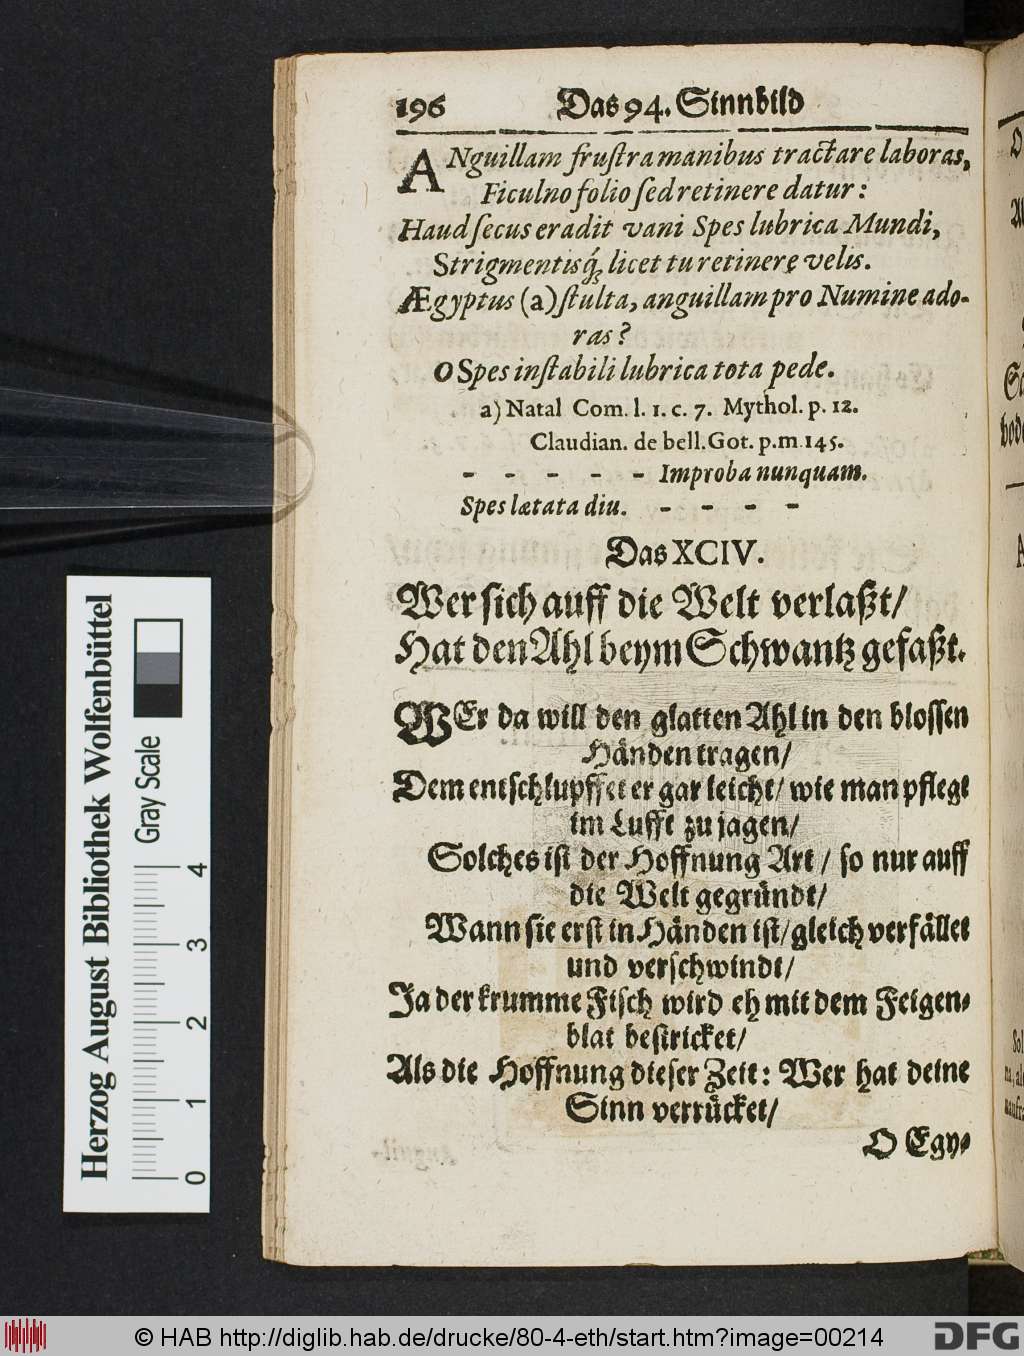 196 Das 94. Sinnbild
ANguillam frustra manibus tractare laboras,
Ficulno folio sed retinere datur:
Haud secus eradit vani Spes lubrica Mundi,
Strigmentisq́; licet tu retinere velis.
Ægyptus (a) stulta, anguillam pro Numine ado-
ras?
O Spes instabili lubrica tota pede.
a) Natal Com. l. 1. c. 7. Mythol. p. 12.
Claudian. de bell. Got. p. m. 145.
- - - - - Improba nunquam.
Spes lætata diu. - - - -
Das XCIV.
Wer sich auff die Welt verlaßt/
Hat den Ahl beym Schwantz gefaßt.
WEr da will den glatten Ahl in den blossen
Händen tragen/
Dem entschlupffet er gar leicht/ wie man pflegt
im Lufft zu jagen/
Solches ist der Hoffnung Art / so nur auff
die Welt gegründt/
Wann sie erst in Händen ist/ gleich verfället
und verschwindt/
Ja der krumme Fisch wird eh mit dem Feigen-
blat bestricket/
Als die Hoffnung dieser Zeit: Wer hat deine
Sinn verrücket/
O Egy-
Herzog August Bibliothek Wolfenbüttel
Gray Scale
0 1 2 3 4
© HAB http://diglib.hab.de/drucke/80-4-eth/start.htm?image=00214
DFG